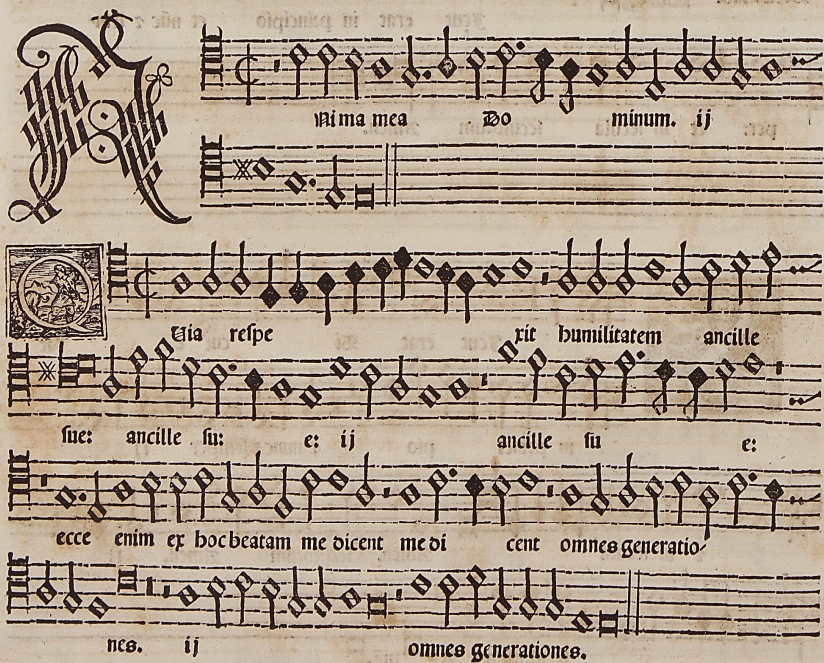 A Nima mea Do minum. ij
Q Uia respe xit humilitatem ancille
sue: ancille su: e: ij ancille su e:
ecce enim ex hoc beatam me dicent me di cent omnes generatio-
nes. ij omnes generationes.